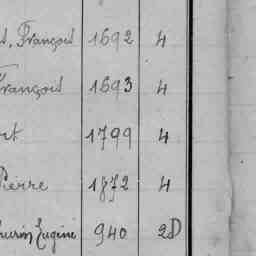 François 1692 4
François 1693 4
1799 4
Pierre 1872 4
Eugène 940 2D